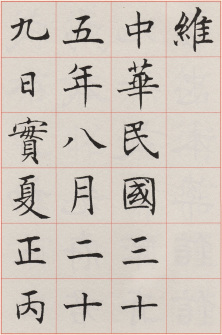 維
中華民國三十
五年八月二十
九日實夏正丙